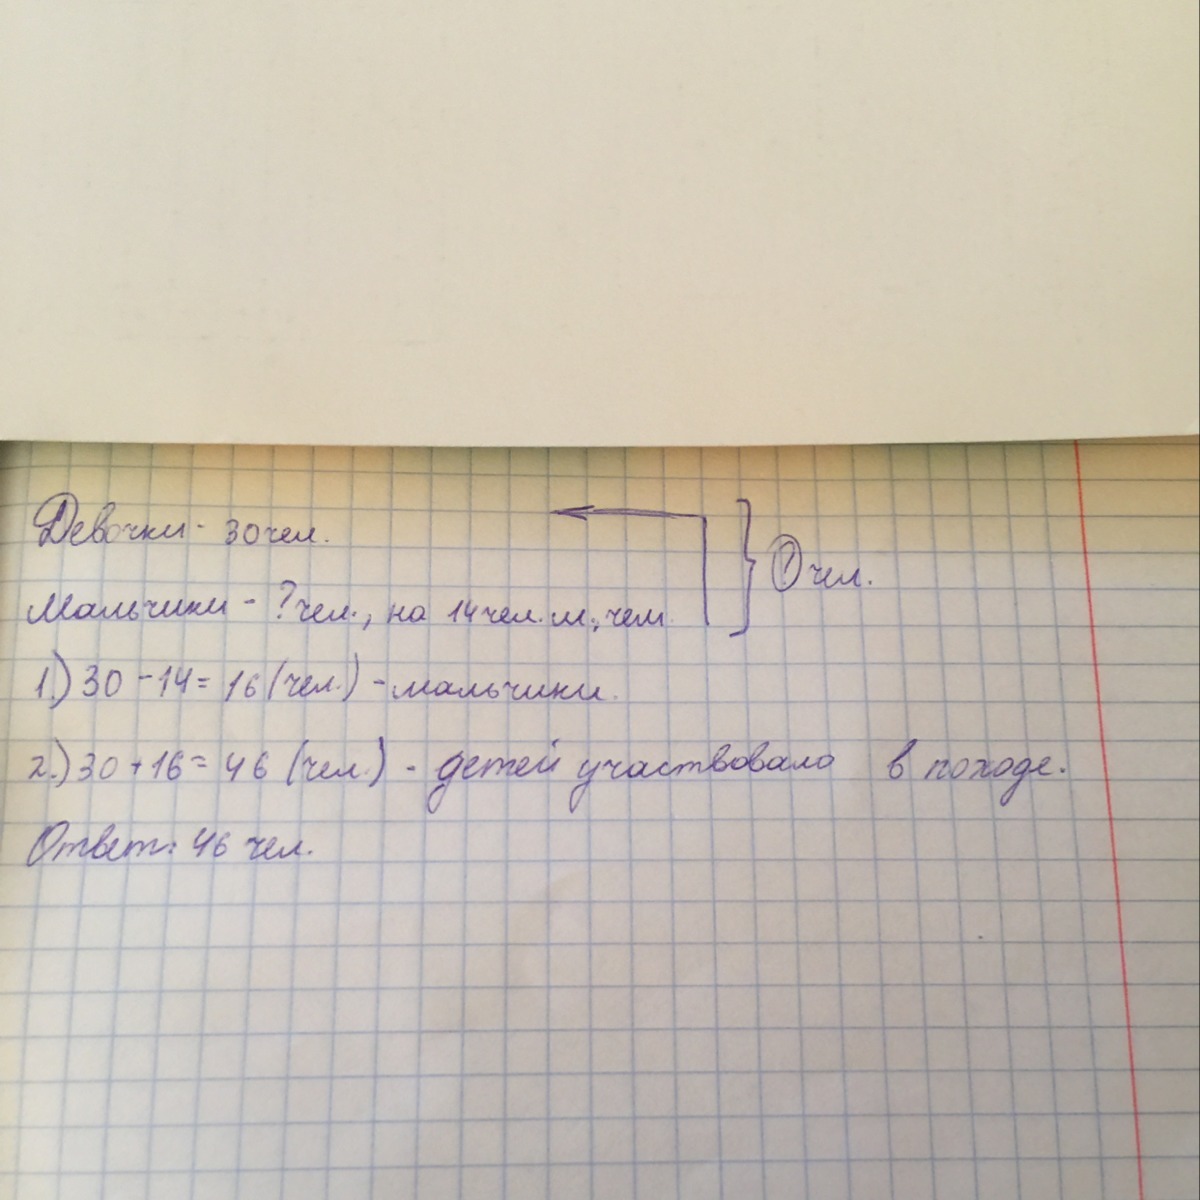 Девочки - 30 чел.
Мальчики - ? чел., на 14 чел. м., чем
} ? чел.
1.) 30 - 14 = 16 (чел.) - мальчики.
2.) 30 + 16 = 46 (чел.) - детей участвовало в походе.
Ответ: 46 чел.